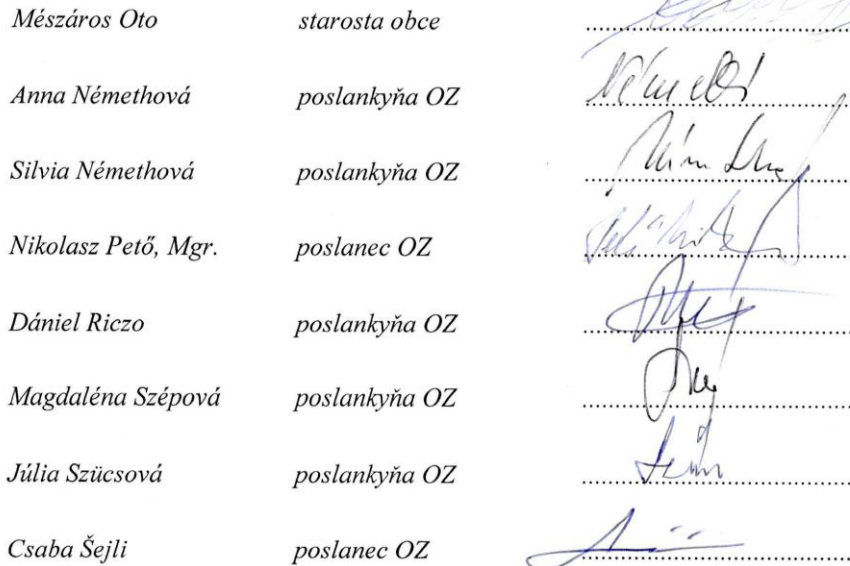 Mészáros Oto starosta obce
Anna Némethová poslankyňa OZ
Silvia Némethová poslankyňa OZ
Nikolasz Pető, Mgr. poslanec OZ
Dániel Riczo poslankyňa OZ
Magdaléna Szépová poslankyňa OZ
Júlia Szücsová poslankyňa OZ
Csaba Šejli poslanec OZ